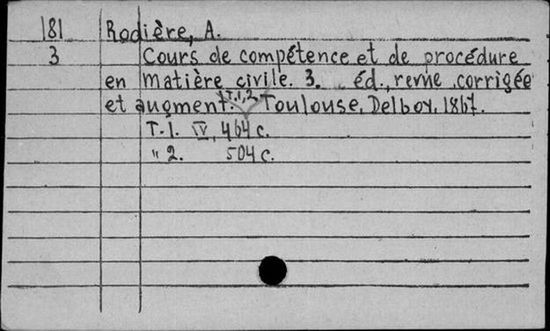 181 Rodière, A.
3 Cours de compétence et de procédure
en matière civile. 3. éd., revue corrigée
et augment. T.1,2. Toulouse, Delboy, 1867.
T. 1. IV, 464 c.
" 2. 504 c.